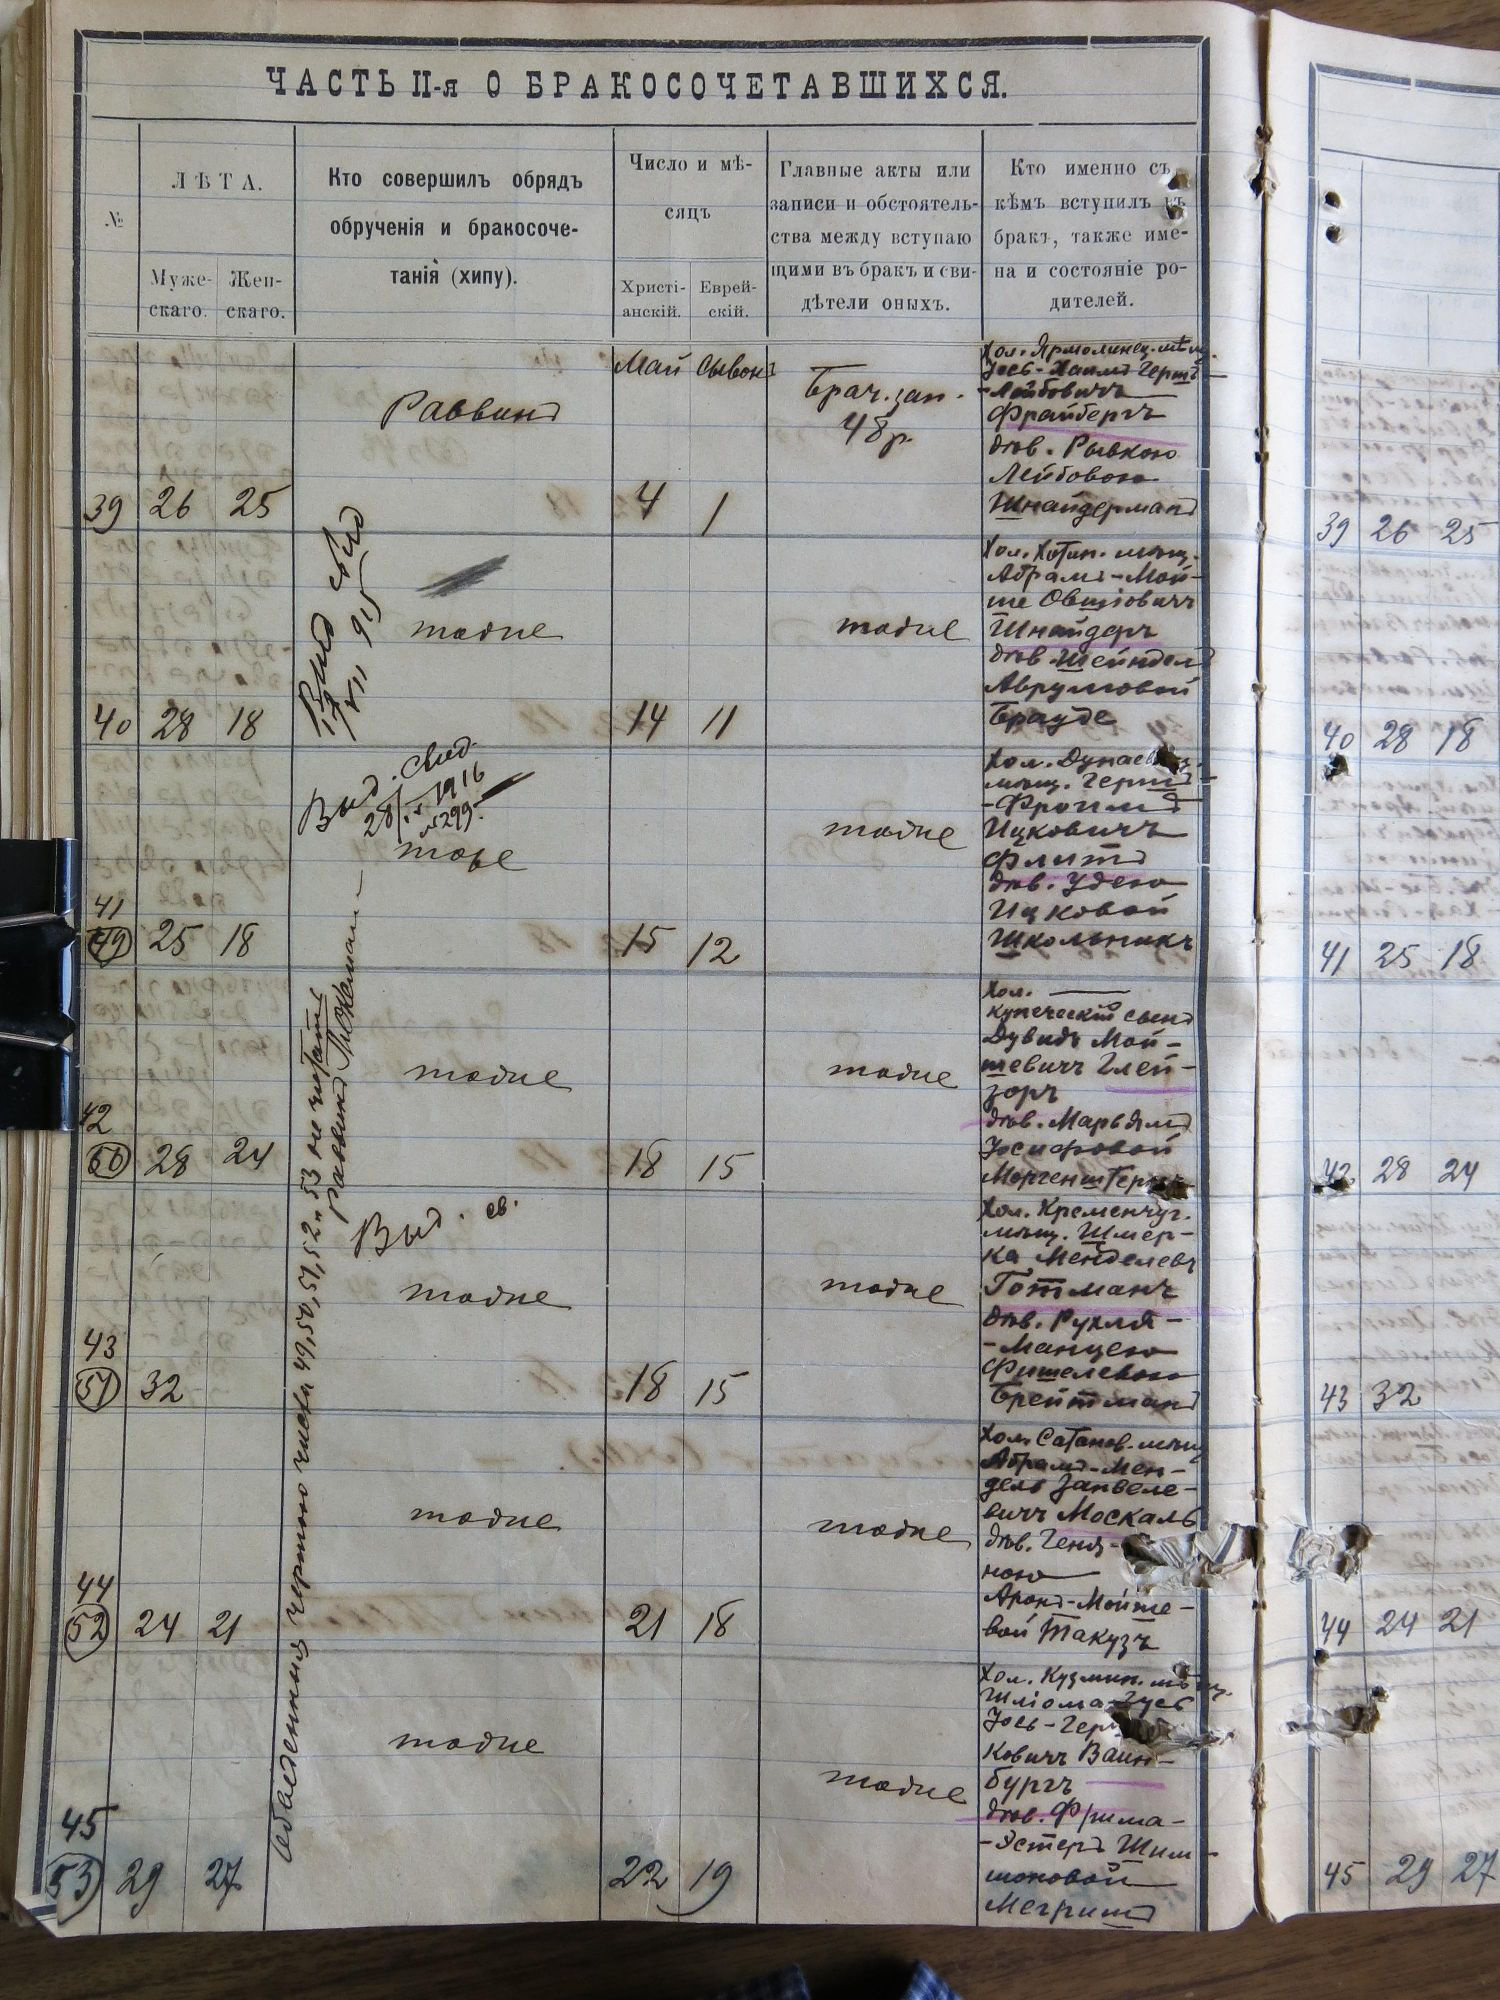 ЧАСТЬ II-я О БРАКОСОЧЕТАВШИХСЯ.
№
ЛѢТА.
Муже-
скаго.
Жен-
скаго.
Кто совершилъ обрядъ
обрученія и бракосоче-
танія (хипу).
Число и мѣ-
сяцъ
Христі-
анскій.
Еврей-
скій.
Главные акты или
записи и обстоятель-
ства между вступаю
щими въ бракъ и сви-
дѣтели оныхъ.
Кто именно съ
кѣмъ вступилъ въ
бракъ, также име-
на и состояніе ро-
дителей.
39 26 25
Раввинъ
Май Сывонъ
4 1
Брач. зап.
48 р.
Хол. Ярмолинец. мѣщ.
Іось-Хаимъ Гершъ-
-Лейбовичъ
Фрайбергъ
дѣв. Рывкою
Лейбовою
Шнайдерманъ
40 28 18
тоже
14 11
тоже
Хол. Хотин. мѣщ.
Абрамъ-Мой-
ше Овшіовичъ
Шнайдеръ
дѣв. Шейндел
Аврумовой
Брауде
Выд. Свид.
VII 915
41
49 25 18
Выд. Свид.
28/ 1916
№299.
тоже
15 12
тоже
Хол. Дунаев
мѣщ. Гершъ-
-Фроимъ
Ицковичъ
Флитъ
дѣв. Удею
Ицковой
Школьникъ
42
50 28 24
тоже
18 15
тоже
Хол.
купеческій сынъ
Дувидъ Мой-
шевичъ Глей-
зоръ
дѣв. Марьямъ
Іосифовой
Моргенштернъ
43
51 32
Выд. св.
тоже
18 15
тоже
Хол. Кременчуг.
мѣщ. Шмер-
ка Менделевъ
Готманъ
дѣв. Рухля-
-Манцею
Фишелевою
Брейтманъ
44
52 24 21
тоже
21 18
тоже
Хол. Сатанов. мѣщ.
Абрамъ-Мен-
дель Занвеле-
вичъ Москаль
дѣв. Геня-
ною
Аронъ-Мойше-
вой Такузъ
45
53 29 27
тоже
22 19
тоже
Хол. Кузмин. мѣщ.
Шліома-Зусь
Іось-Гер
ковичъ Вайн-
бургъ
дѣв. Фрима-
-Эстеръ Шим-
шоновой
Мегришъ
Обведенныя чертою числа 49, 50, 51, 52 и 53 не читать
Раввинъ
39 26 25
40 28 18
41 25 18
42 28 24
43 32
44 24 21
45 29 27